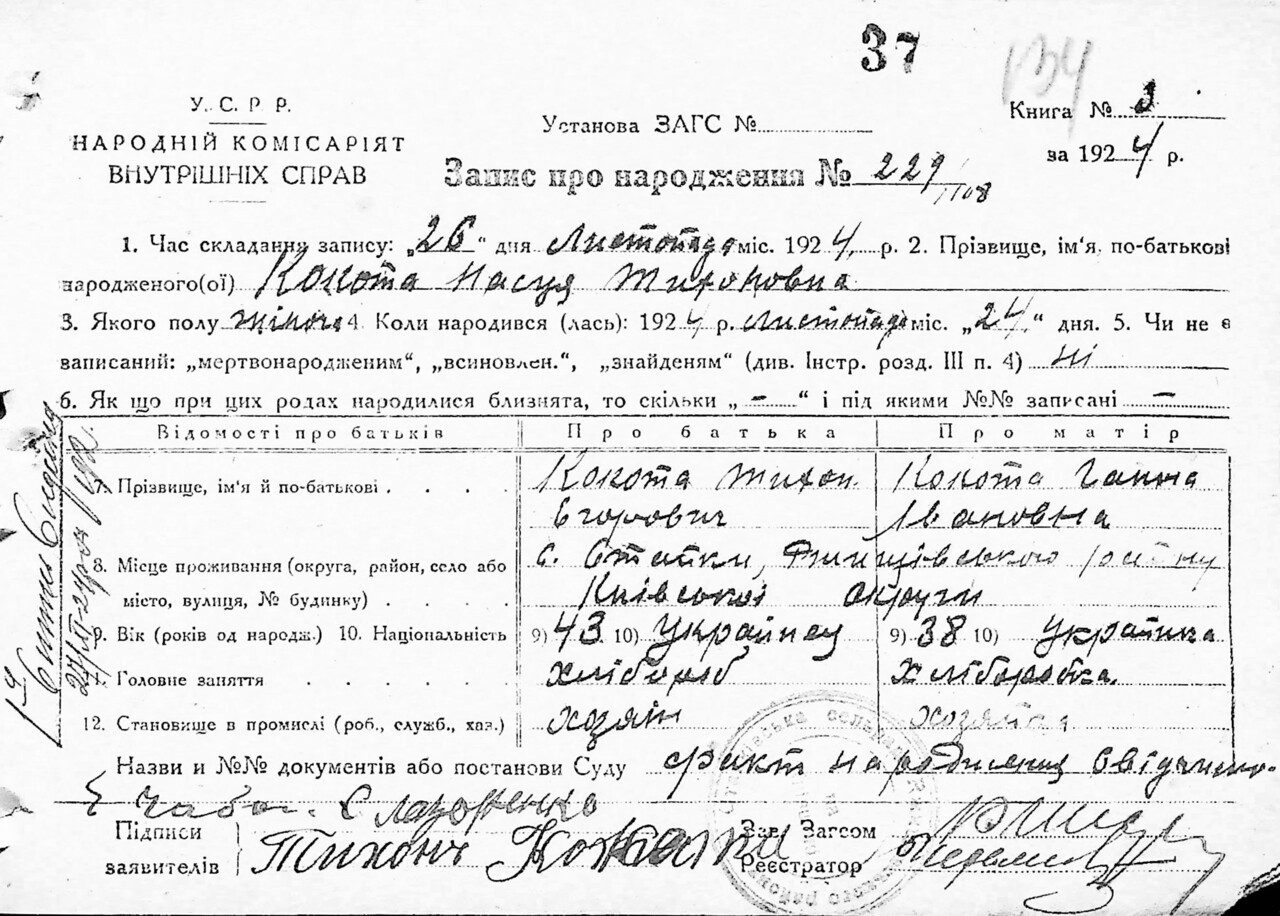 37
134
У. С. Р. Р.
НАРОДНІЙ КОМІСАРІЯТ
ВНУТРІШНІХ СПРАВ
Установа ЗАГС №
Книга № 3
за 1924 р.
Запис про народження № 229
1108
1. Час складання запису: „26" дня Листопада міс. 1924 р. 2. Прізвище, ім'я по-батькові
народженого(ої) Кокота Настя Тихоновна
3. Якого полу жіноч 4. Коли народився (лась): 1924 р. Листопада міс. „24" дня. 5. Чи не є
записаний: „мертвонародженим", „всиновлен.", „знайденям" (див. Інстр. розд. III п. 4) ні
6. Як що при цих родах народилися близнята, то скільки „ – " і під якими №№ записані –
Відомості про батьків Про батька Про матір
7. Прізвище, ім'я й по-батькові . . . . Кокота Тихон Кокота Ганна
Єгорович Івановна
8. Місце проживання (округа, район, село або с. Стайки, району
місто, вулиця, № будинку) . . . . Київської округи
9. Вік (років од народж.) 10. Національність 9) 43 10) Українец 9) 38 10) Українка
Головне заняття . . . . . хлібороб хліборобка
12. Становище в промислі (роб., служб., хаз.) хозяін хозяйка
Назви и №№ документів або постанови Суду факт народження свідчено
Підписи
заявителів
Тихонъ Кокота
Зав. Загсом
Реєстратор